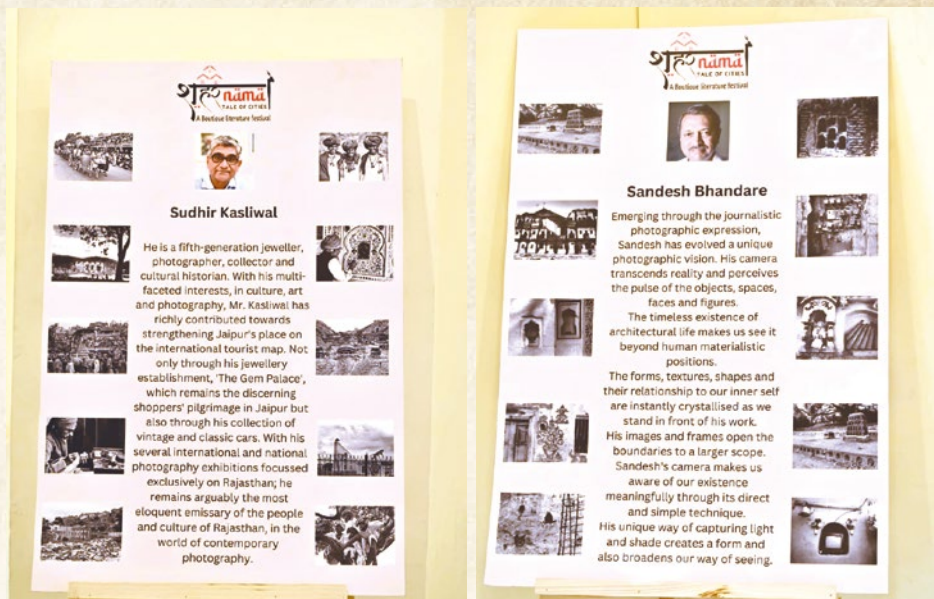 शहर nāmā
TALE OF CITIES
A Boutique literature festival
Sudhir Kasliwal
He is a fifth-generation jeweller,
photographer, collector and
cultural historian. With his multi-
faceted interests, in culture, art
and photography, Mr. Kasliwal has
richly contributed towards
strengthening Jaipur's place on
the international tourist map. Not
only through his jewellery
establishment, 'The Gem Palace',
which remains the discerning
shoppers' pilgrimage in Jaipur but
also through his collection of
vintage and classic cars. With his
several international and national
photography exhibitions focussed
exclusively on Rajasthan; he
remains arguably the most
eloquent emissary of the people
and culture of Rajasthan, in the
world of contemporary
photography.
शहर nāmā
TALE OF CITIES
A Boutique literature festival
Sandesh Bhandare
Emerging through the journalistic
photographic expression,
Sandesh has evolved a unique
photographic vision. His camera
transcends reality and perceives
the pulse of the objects, spaces,
faces and figures.
The timeless existence of
architectural life makes us see it
beyond human materialistic
positions.
The forms, textures, shapes and
their relationship to our inner self
are instantly crystallised as we
stand in front of his work.
His images and frames open the
boundaries to a larger scope.
Sandesh's camera makes us
aware of our existence
meaningfully through its direct
and simple technique.
His unique way of capturing light
and shade creates a form and
also broadens our way of seeing.